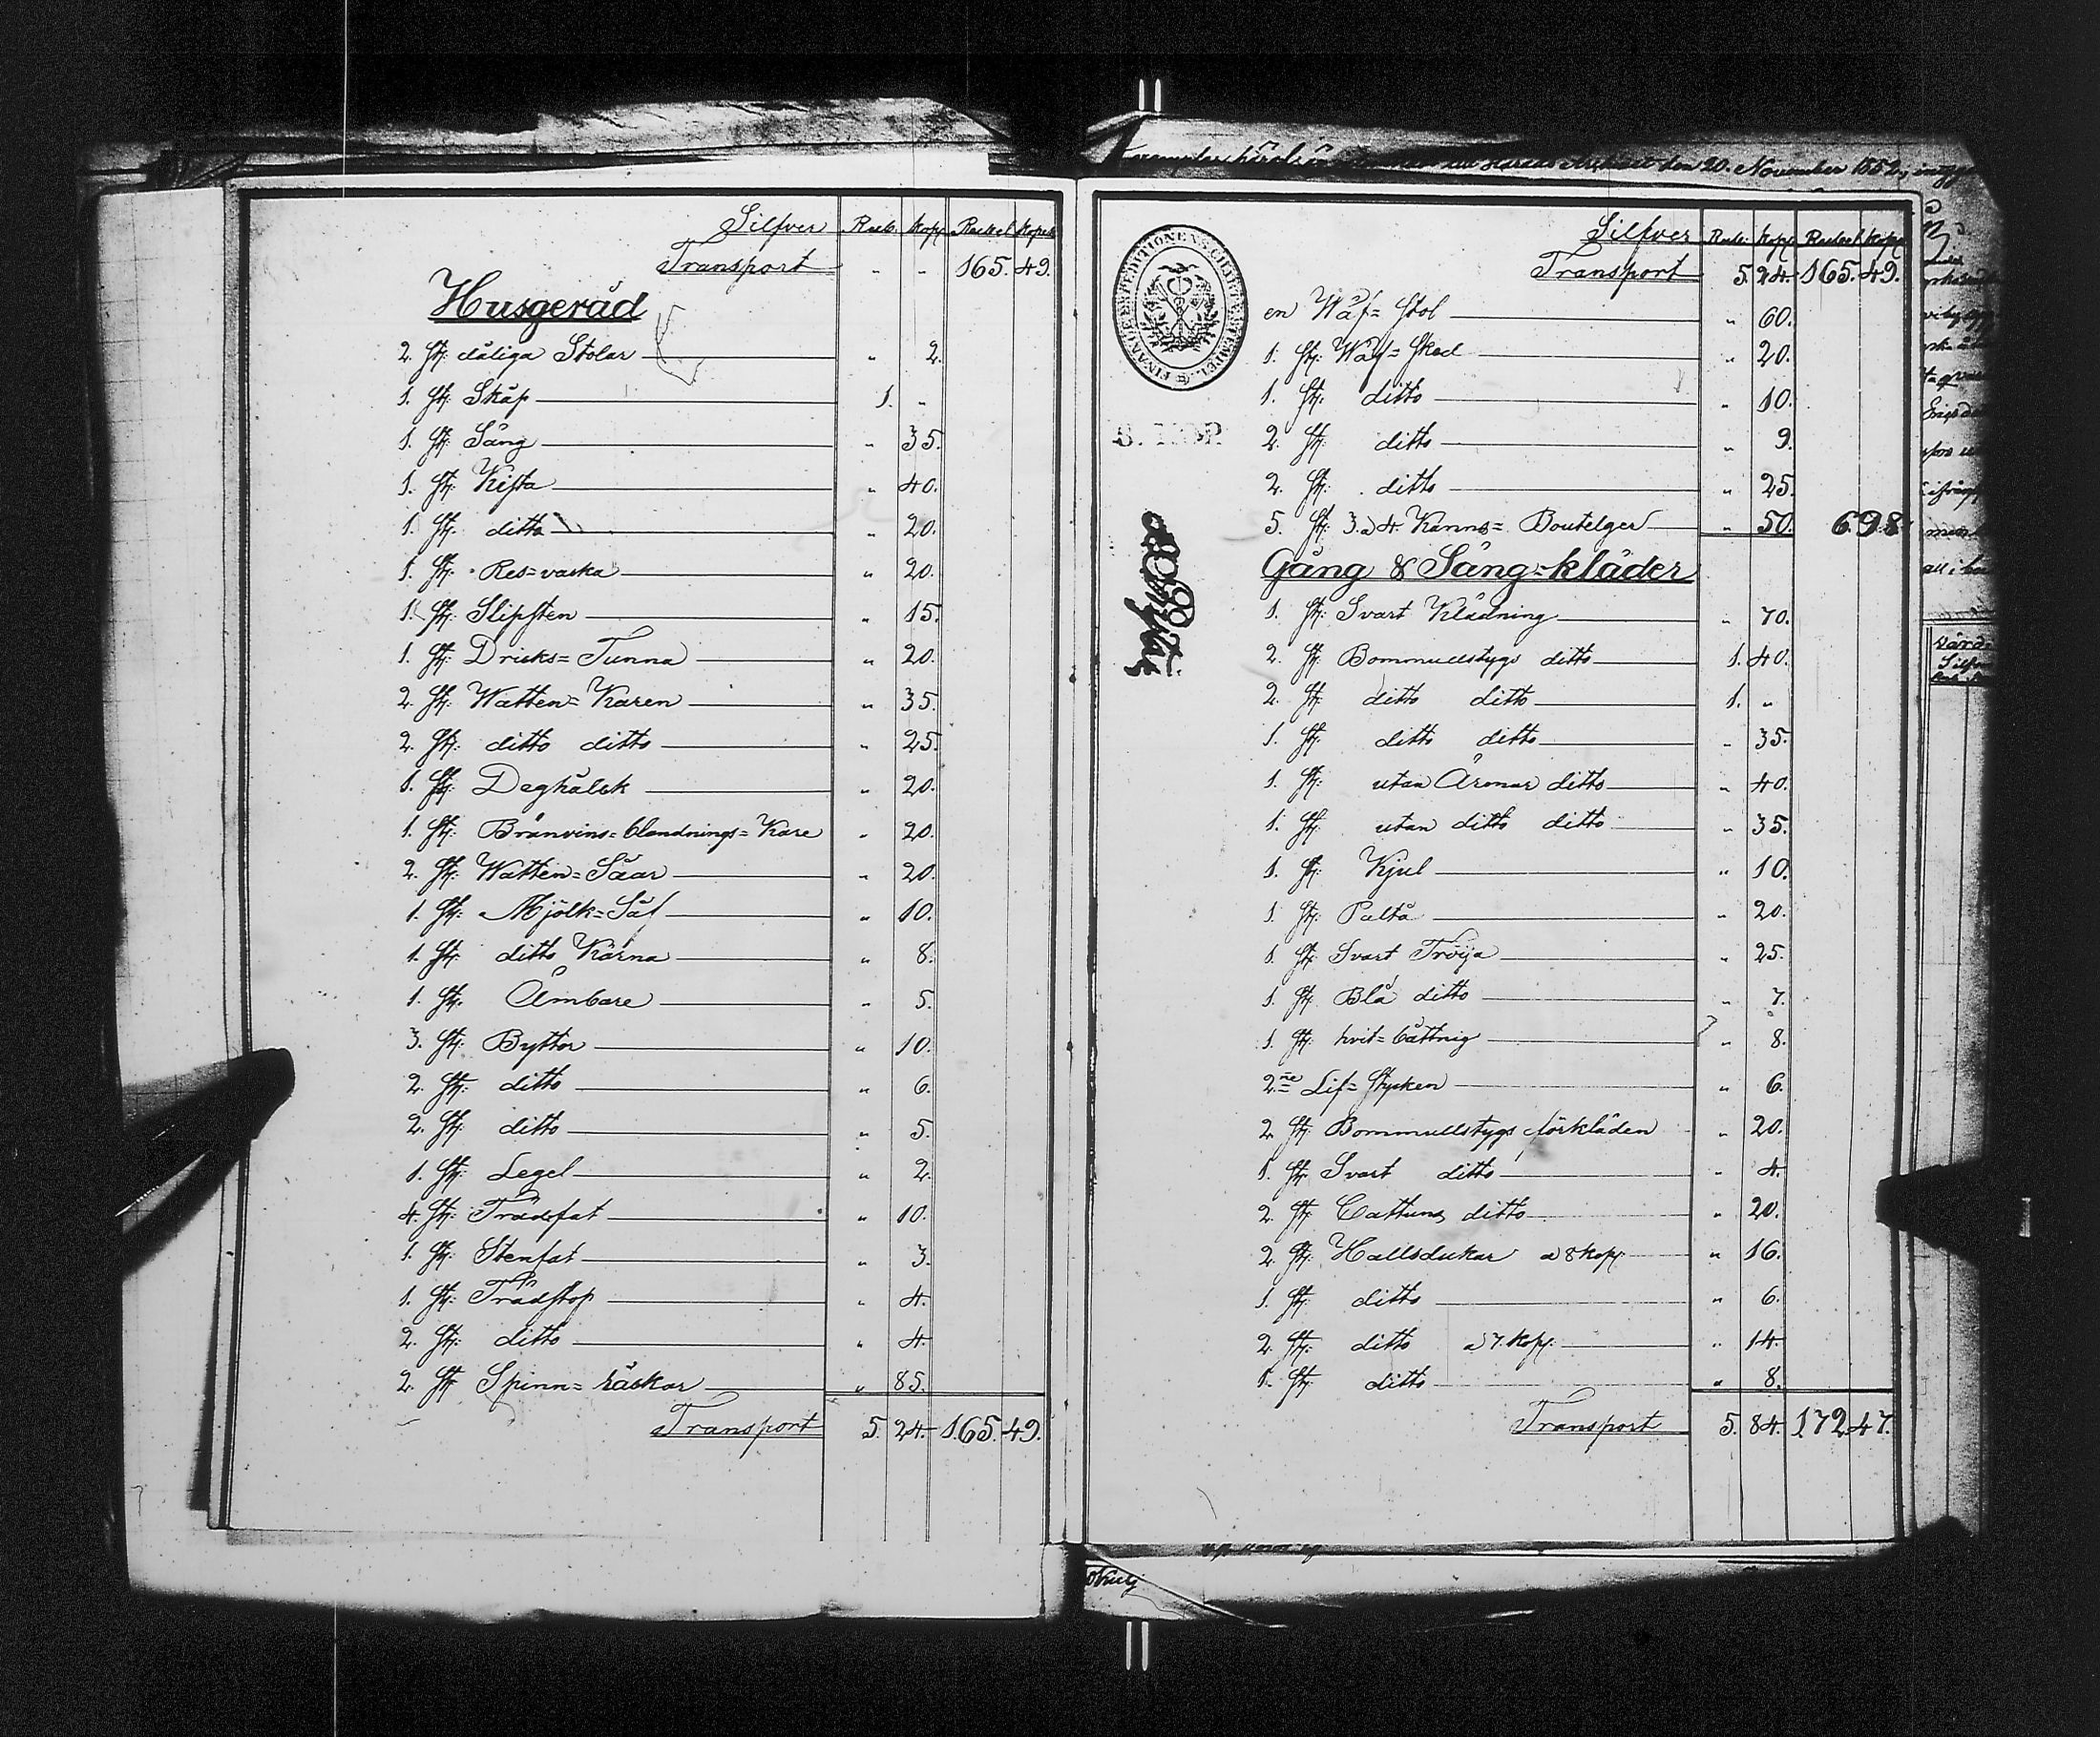 Silfver Rub. Kop. Rubel Kopek
Transport " " 165. 49.
Husgeråd
2. St: dåliga Stolar " 2.
1. St: Skåp 1. "
1. St: Säng " 35.
1. St: Kista " 40.
1. St: ditto " 20.
1. St: Res=vaska " 20.
1. St: Slipsten " 15.
1. St: Dricks=Tunna " 20.
2. St: Watten=Karen " 35.
2. St: ditto ditto " 25.
1. St: Deghålck " 20.
1. St: Bränvins=blandnings=Kare " 20.
2. St: Watten=Såar " 20.
1. St: Mjölk=Så " 10.
1. St: ditto Kärna " 8.
1. St: Ämbare " 5.
3. St: Byttor " 10.
2. St: ditto " 6.
2. St: ditto " 5.
1. St: Legel " 2.
4. St: Trädfat " 10.
1. St: Stenfat " 3.
1. St: Trädstop " 4.
2. St: ditto " 4.
2. St: Spinn=råckar " 85.
Transport 5. 24. 165. 49.
den 20. November 1852,
FINANCE EXPEDITIONENS CHARTÆ STEMPEL.
Silfver Rub: Kop. Rubel Kop.
Transport 5. 24. 165. 49.
en Wäf=Stol " 60.
1. St: Wäf=Sked " 20.
1. St: ditto " 10.
2. St: ditto " 9.
2. St: ditto " 25.
5. St: 3. a 4 Kanns=Boutelger " 50. 6. 98.
Gång & Säng=kläder
1. St: Svart Klädning " 70.
2. St: Bommullstygs ditto 1. 40.
2. St: ditto ditto 1. "
1. St: ditto ditto " 35.
1. St: utan Ärmar ditto " 40.
1. St: utan ditto ditto " 35.
1. St: Kjul " 10.
1. St: Paltå " 20.
1. St: Svart Tröija " 25.
1. St: Blå ditto " 7.
1. St: hvit= " 8.
2.ne Lif=Stycken " 6.
2. St: Bommullstygs förkläden " 20.
1. St: Svart ditto " 4.
2. St: Cattuns ditto " 20.
2. St: Hallsdukar a 8 kop. " 16.
1. St: ditto " 6.
2. St: ditto a 7. Kop. " 14.
1. St: ditto " 8.
Transport 5. 84. 172. 47.